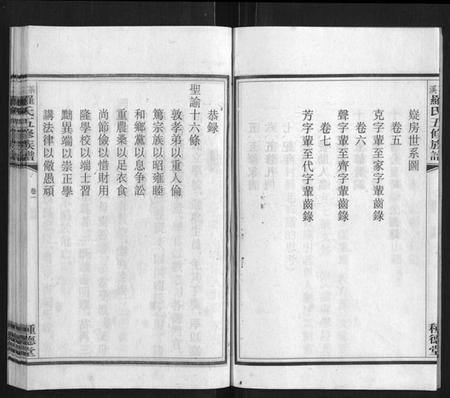 羅氏五修族譜
種德堂
㷫房世系圖
卷五
克字輩至家字輩齒錄
卷六
聲字輩至齊字輩齒錄
卷七
芳字輩至代字輩齒錄
恭錄
聖諭十六條
敦孝弟以重人倫
篤宗族以昭雍睦
和鄉黨以息爭訟
重農桑以足衣食
尚節儉以惜財用
隆學校以端士習
黜異端以崇正學
講法律以儆愚頑
羅氏五修族譜
卷一
種德堂